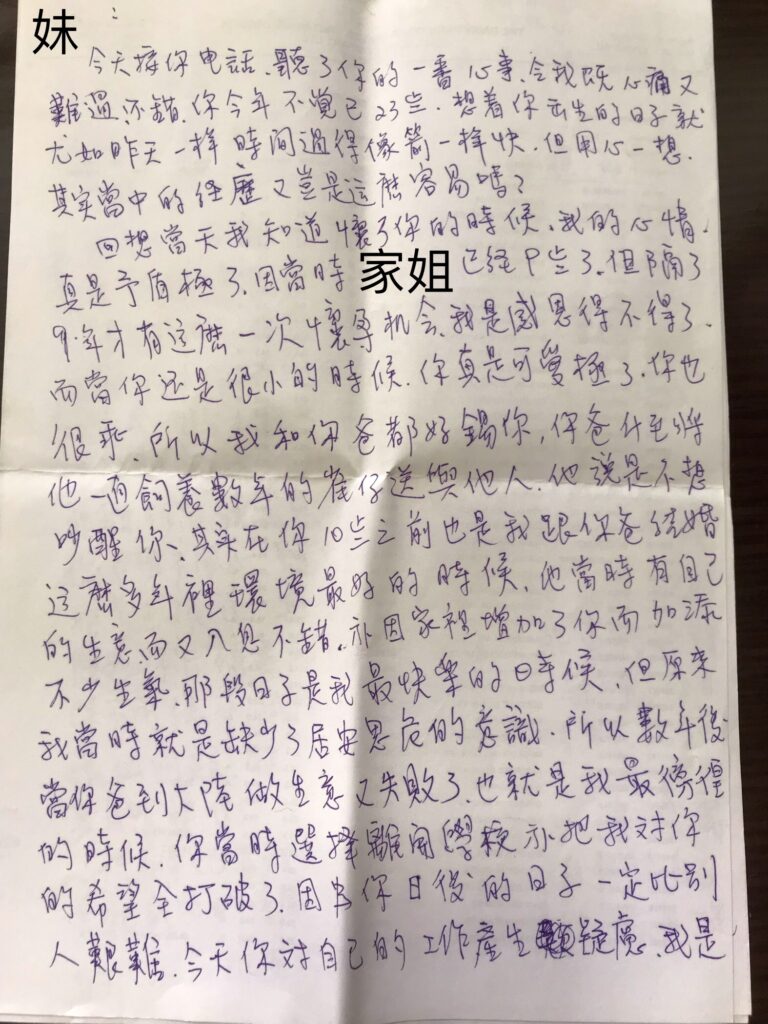 妹
今天接你电話、聽了你的一番心事、令我既心痛又
難過。不錯、你今年不覚已23岁、想着你出生的日子就
尤如昨天一样時间過得像箭一样快、但用心一想、
其实當中的经歷又豈是这麽容易嗎？
回想當天我知道懷了你的時候、我的心情、
真是矛盾極了、因當時家姐已经9岁了、但隔了
9年才有这麽一次懷孕机会、我是感恩得不得了、
而當你还是很小的時候、你真是可爱極了、你也
很乖、所以我和你爸都好錫你、你爸什至將
他一直飼養數年的雀仔送與他人、他說是不想
吵醒你、其实在你10岁之前也是我跟你爸结婚
这麽多年裡環境最好的時候、他當時有自己
的生意而又入息不錯、亦因家裡增加了你而加添
不少生氣、那段日子是我最快樂的時候、但原来
我當時就是缺少了居安思危的意識、所以數年後
當你爸到大陸做生意又失敗了、也就是我最徬徨
的時候、你當時選擇離開學校亦把我对你
的希望全打破了、因為你日後的日子一定比别
人艱難、今天你对自己的工作產生疑慮、我是